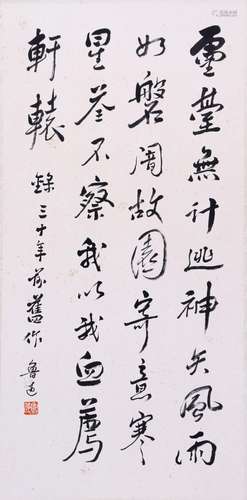 靈臺無計逃神矢風雨
如磐闇故園寄意寒
星荃不察我以我血薦
軒轅
錄三十年前舊作 魯迅